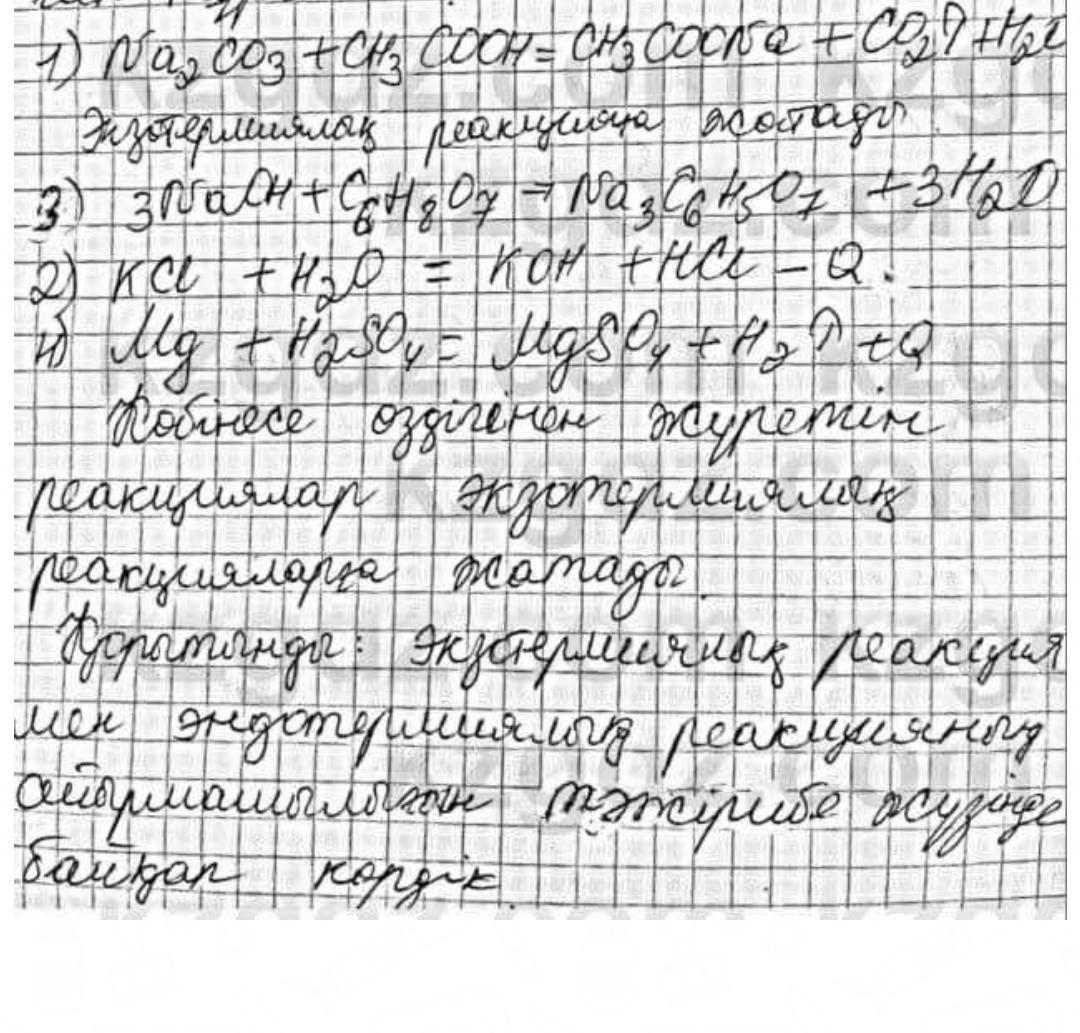 1) Na₂CO₃ + CH₃COOH = CH₃COONa + CO₂↑ + H₂O
Экзотермиялық реакцияға жатады.
3) 3NaOH + C₆H₈O₇ = Na₃C₆H₅O₇ + 3H₂O
2) KCl + H₂O = KOH + HCl – Q.
4) Mg + H₂SO₄ = MgSO₄ + H₂↑ + Q
Көбінесе өздігінен жүретін
реакциялар экзотермиялық
реакцияларға жатады.
Қорытынды: экзотермиялық реакция
мен эндотермиялық реакцияның
айырмашылығын тәжірибе жүзінде
байқап көрдік.